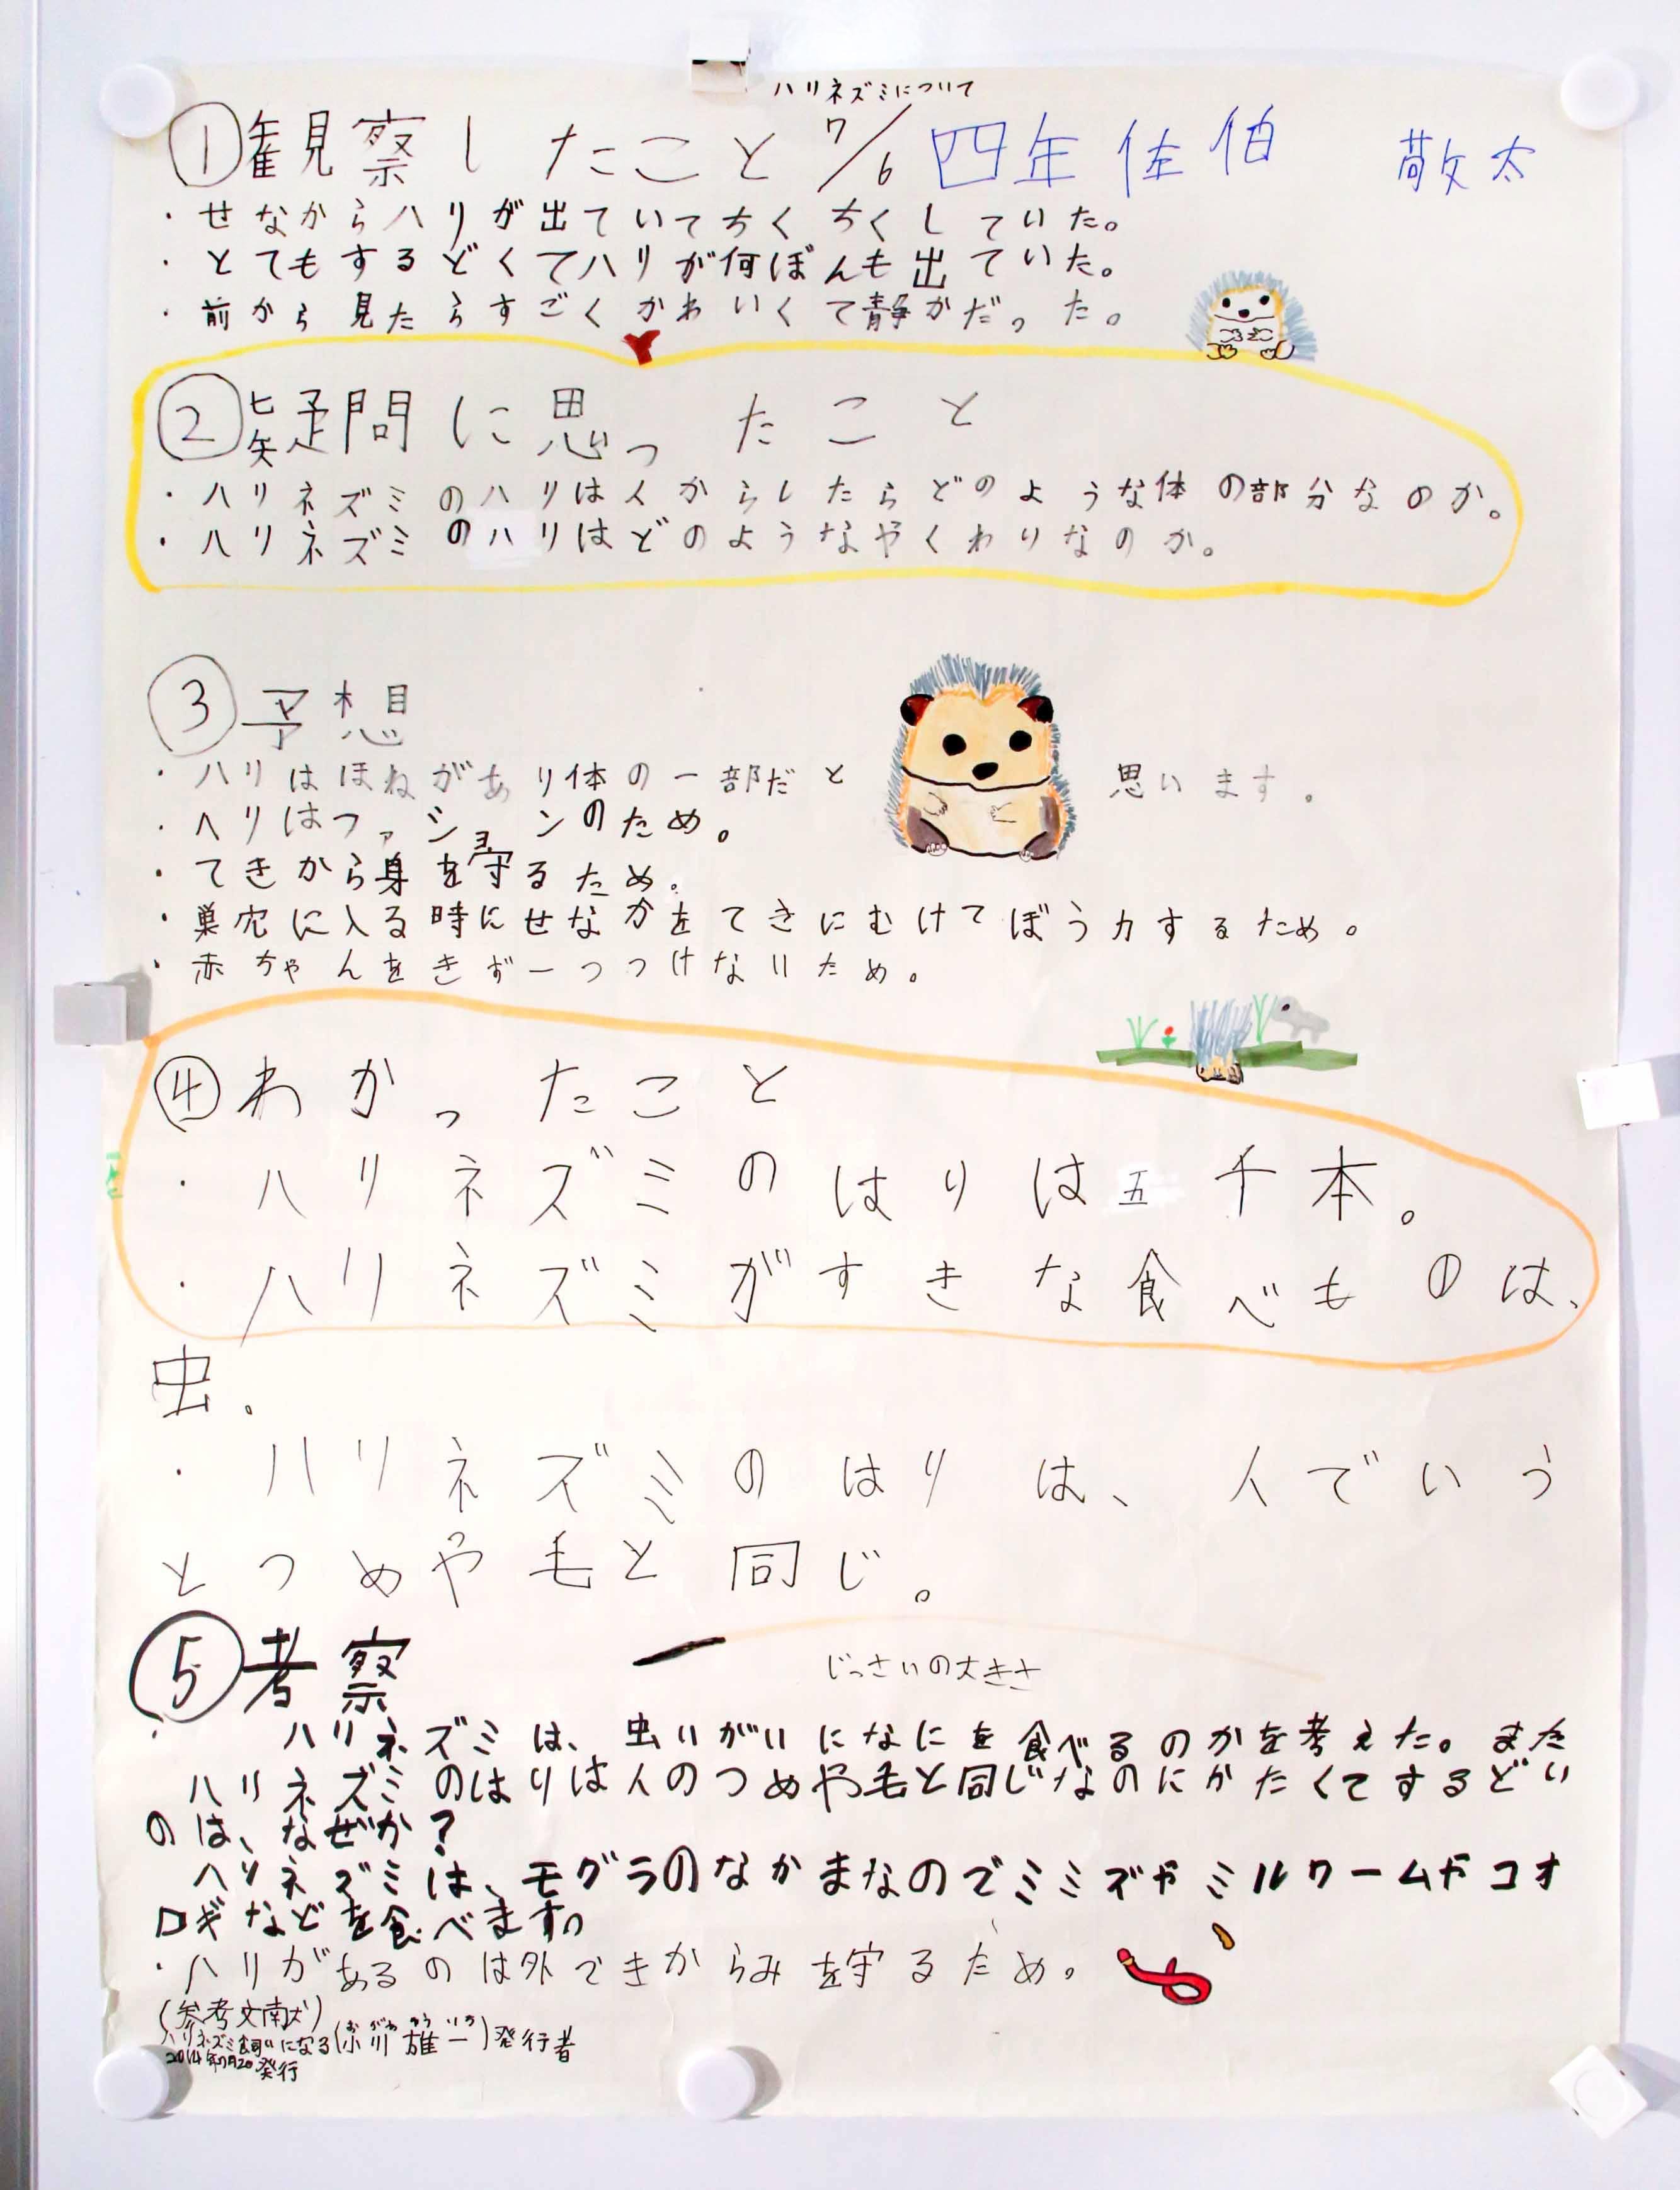 ハリネズミについて
①観察したこと 7/6 四年 佐伯 敬太
・せなからハリが出ていてちくちくしていた。
・とてもするどくてハリが何ぼんも出ていた。
・前から見たらすごくかわいくて静かだった。
②疑問に思ったこと
・ハリネズミのハリは人からしたらどのような体の部分なのか。
・ハリネズミのハリはどのようなやくわりなのか。
③予想
・ハリはほねがあり体の一部だと思います。
・ヘリはファションのため。
・てきから身を守るため。
・巣穴に入る時にせなかをてきにむけてぼう力するため。
・赤ちゃんをきずーつつけないため。
④わかったこと
・ハリネズミのはりは五千本。
・ハリネズミがすきな食べものは、
虫.
・ハリネズミのはりは、人でいう
とつめや毛と同じ。
⑤考察
じっさいの大きさ
・ハリネズミは、虫いがいになにを食べるのかを考えた。また
ハリネズミのはりは人のつめや毛と同じなのにかたくてするどい
のは、なぜか?
ハリネズミは、モグラのなかまなのでミミズやミルワームやコオ
ロギなどを食べます。
・ハリがあるのは外できからみを守るため。
(参考文献)
ハリネズミ飼いになる(小川雄一)発行者
おがわゆういち
2014年7月20発行